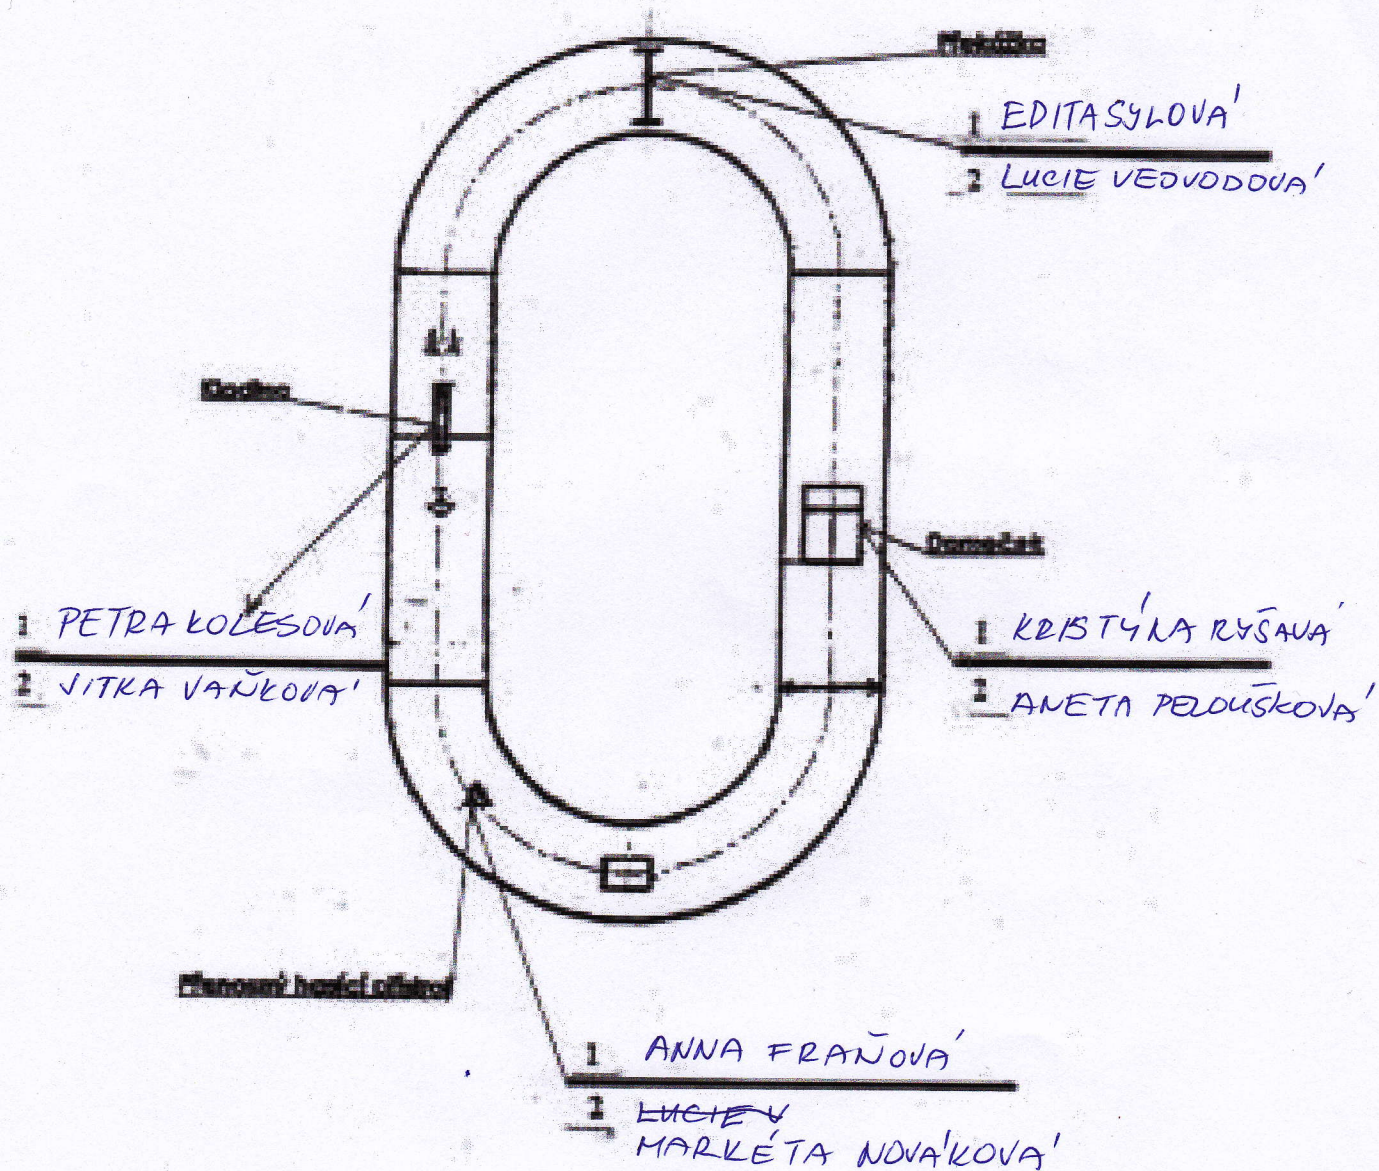 Překážka
1 EDITA SYLOVÁ
2 LUCIE VEDVODOVÁ
Kladina
Domeček
1 PETRA KOLESOVÁ
2 JITKA VAŇKOVÁ
1 KRISTÝNA RYŠAVÁ
2 ANETA PELOUŠKOVÁ
Přenosný hasicí přístroj
1 ANNA FRAŇOVÁ
2 LUCIE V
MARKÉTA NOVÁKOVÁ